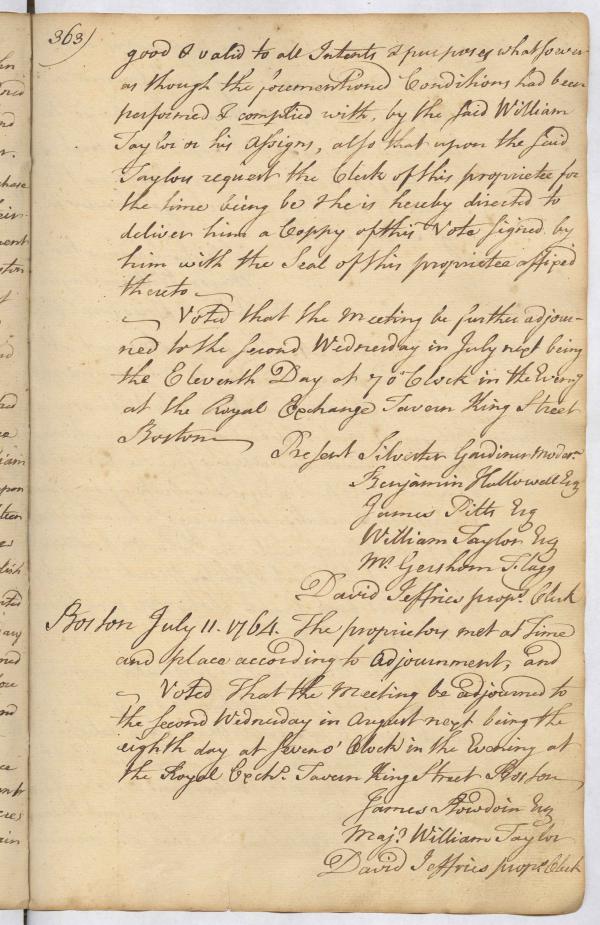 363)
good & valid to all Intents & purposes whatsoever
as though the forementioned Conditions had been
performed & complied with, by the said William
Taylor or his Assigns, also that upon the said
Taylors request the Clerk of this proprietee for
the time being be & he is hereby directed to
deliver him a Coppy of this Vote signed by
him with the Seal of this proprietee affixed
thereto
Voted that the Meeting be further adjour-
ned to the second Wednesday in July next being
the Eleventh Day at 7 o'Clock in the Eveng
at the Royal Exchange Tavern King Street
Boston
Present Silvester Gardiner Moder.
Benjamin Hallowell Esq
James Pitts Esq
William Taylor Esq
Mr. Gershom Flagg
David Jeffries propr. Clerk
Boston July 11. 1764. The proprietors met at Time
and place according to Adjournment, and
Voted That the Meeting be adjourned to
the second Wednesday in August next being the
eighth day at seven o' Clock in the Evening at
the Royal Exche. Tavern King Street Boston
James Bowdoin Esq
Majr. William Taylor
David Jeffries propr. Clerk